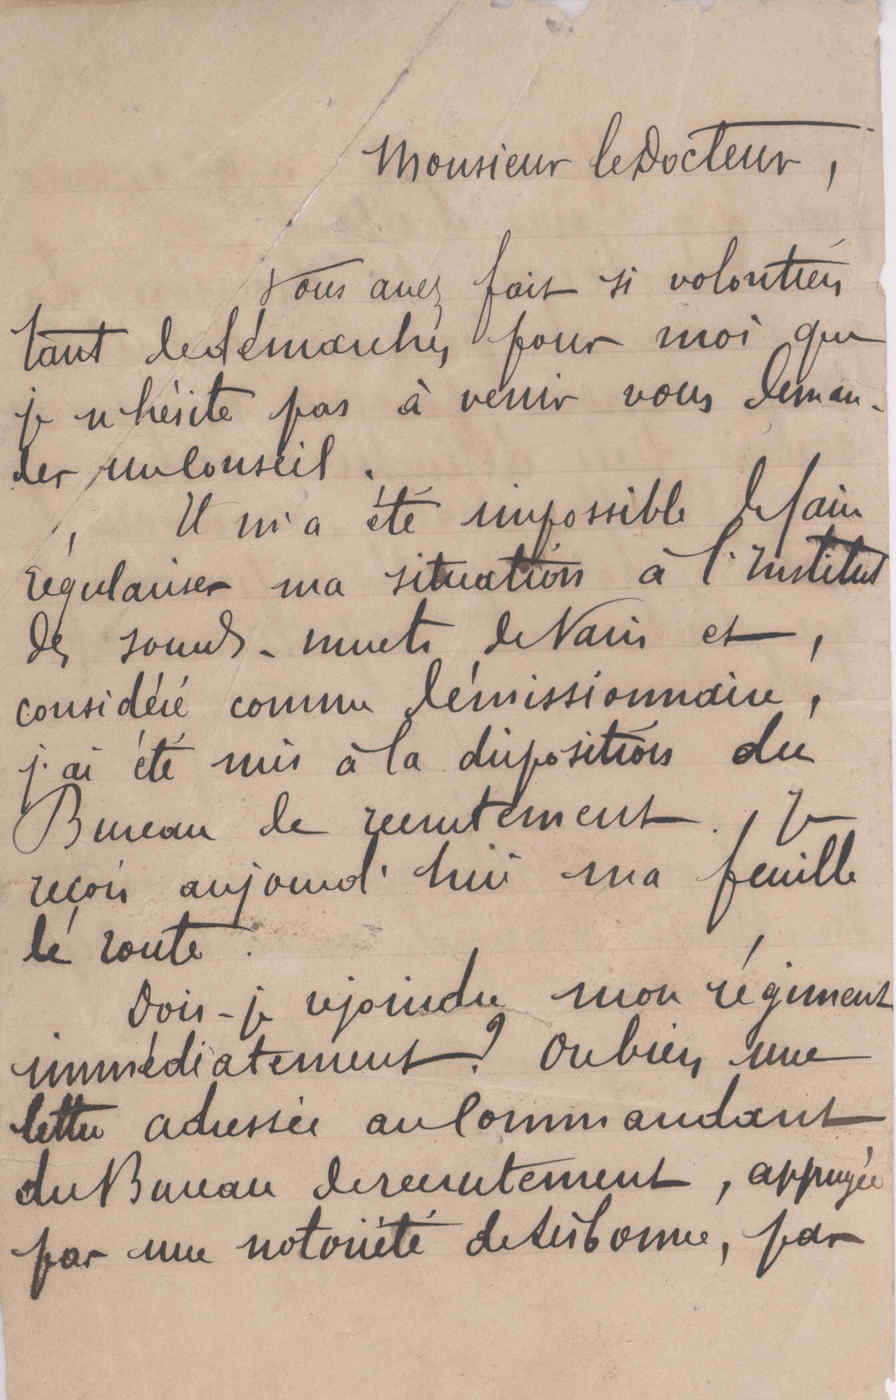 Monsieur le Docteur,
Vous avez fait si volontiers
tant de démarches pour moi que
je n'hésite pas à venir vous deman-
der un conseil.
Il m'a été impossible de faire
régulariser ma situation à l'Institut
des sourds-muets de Paris et,
considéré comme démissionnaire,
j'ai été mis à la disposition du
Bureau de recrutement. Je
reçois aujourd'hui ma feuille
de route.
Dois-je rejoindre mon régiment
immédiatement? Ou bien une
lettre adressée au Commandant
du Bureau de recrutement, appuyée
par une notoriété de , par